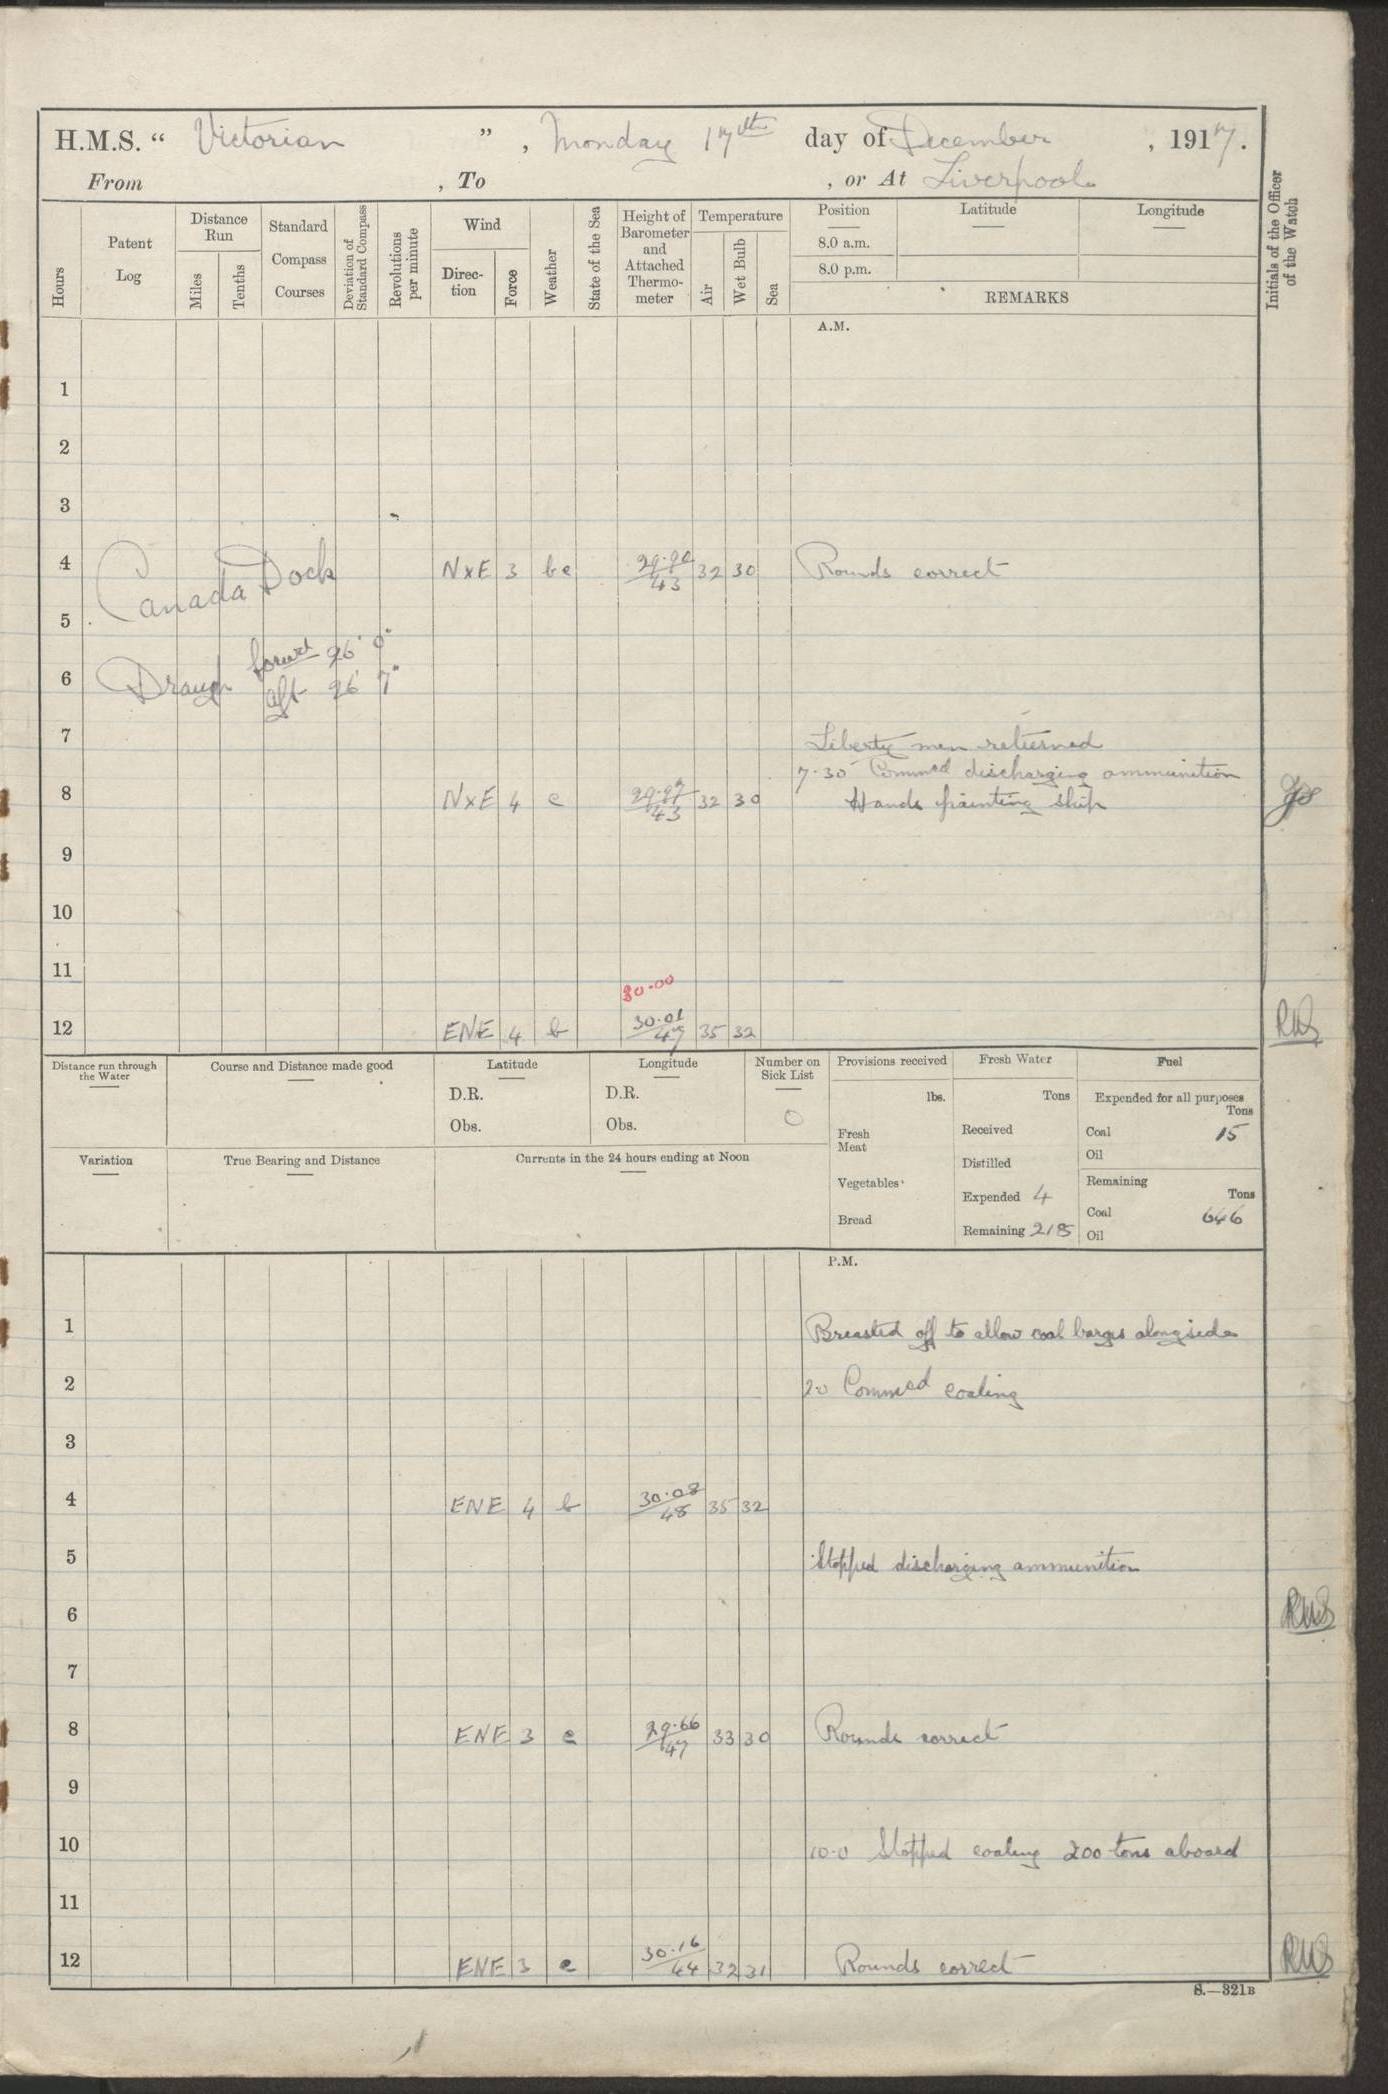 H.M.S. “ Victorian ” , Monday 17th day of December , 1917.
From , To , or At Liverpool.
Hours
Patent Log
Distance Run
Miles
Tenths
Standard Compass Courses
Deviation of Standard Compass
Revolutions per minute
Wind
Direc-tion
Force
Weather
State of the Sea
Height of Barometer and Attached Thermo-meter
Temperature
Air
Wet Bulb
Sea
Position
Latitude
Longitude
8.0 a.m.
8.0 p.m.
REMARKS
Initials of the Officer of the Watch
A.M.
1
2
3
4 NxE 3 bc 43 32 30 Rounds correct
Canada Dock
5
forwd 26' 0"
6 Draugh
aft 26' 7"
7 Liberty men returned
7.30 Commcd discharging ammunition
8 NxE 4 c 29.97 43 32 30 Hands painting ship
9
10
11
30.00
12 ENE 4 b 30.01 47 35 32 RWS
Distance run through the Water
Course and Distance made good
Latitude
D.R.
Obs.
Longitude
D.R.
Obs.
Number on Sick List
0
Provisions received
lbs.
Fresh Meat
Vegetables
Bread
Fresh Water
Tons
Received
Distilled
Expended 4
Remaining 218
Fuel
Expended for all purposes
Tons
Coal 15
Oil
Remaining
Tons
Coal 646
Oil
Variation
True Bearing and Distance
Currents in the 24 hours ending at Noon
P.M.
1 Breasted off to allow coal barges alongside
2 2.0 Commcd coaling
3
4 ENE 4 b 30.08 48 35 32
5 Stopped discharging ammunition
6 RWS
7
8 ENE 3 c 29.66 47 33 30 Rounds correct
9
10 10.0 Stopped coaling 200 tons aboard
11
12 ENE 3 c 30.16 44 32 31 Rounds correct RWS
S.—321B